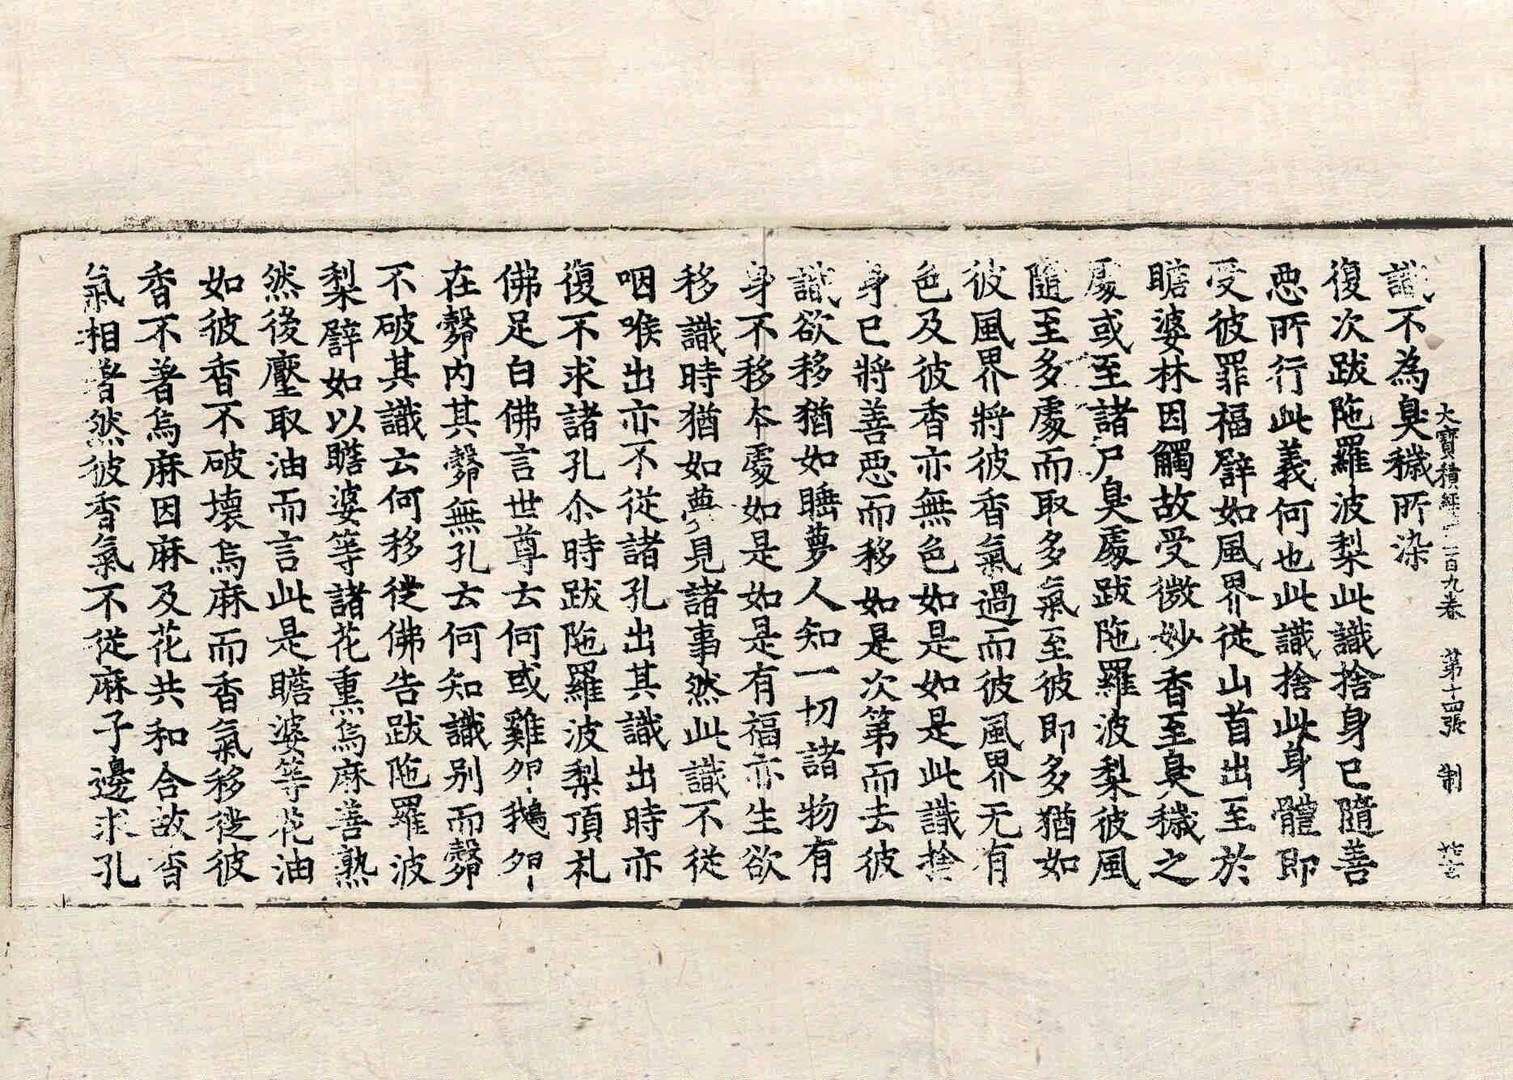 大寶積經一百九卷 第十四張 制
識不為臭穢所染
復次跋陁羅波梨此識捨身已隨善
惡所行此義何也此識捨此身體即
受彼罪福譬如風界從山首出至於
瞻婆林因觸故受微妙香至臭穢之
處或至諸尸臭處跋陁羅波梨彼風
隨至多處而取多氣至彼即多猶如
彼風界將彼香氣過而彼風界无有
色及彼香亦無色如是如是此識捨
身已將善惡而移如是次第而去彼
識欲移猶如睡夢人知一切諸物有
身不移本處如是如是有福亦生欲
移識時猶如夢見諸事然此識不從
咽喉出亦不從諸孔出其識出時亦
復不求諸孔尒時跋陁羅波梨頂礼
佛足白佛言世尊云何或雞卵鵝卵
在㲉內其㲉無孔云何知識別而㲉
不破其識云何移徙佛告跋陁羅波
梨譬如以瞻婆等諸花熏烏麻善熟
然後壓取油而言此是瞻婆等花油
如彼香不破壞烏麻而香氣移徙彼
香不著烏麻因麻及花共和合故香
氣相著然彼香氣不從麻子邊求孔